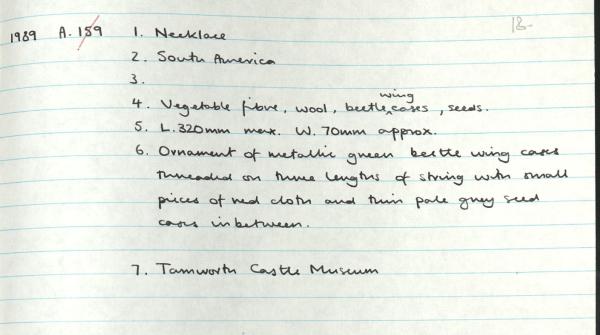 18-
1989 A.159 1. Necklace
2. South America
3.
4. Vegetable fibre, wool, beetle wing cases, seeds.
5. L.320mm max. W.70mm approx.
6. Ornament of metallic green beetle wing cases
threaded on three lengths of string with small
pieces of red cloth and thin pale grey seed
cases inbetween.
7. Tamworth Castle Museum